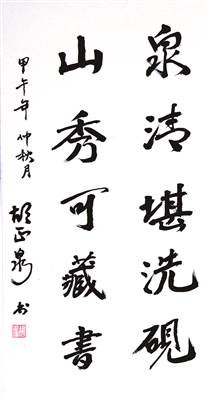 泉清堪洗硯
山秀可藏書
甲午年仲秋月
胡正泉书